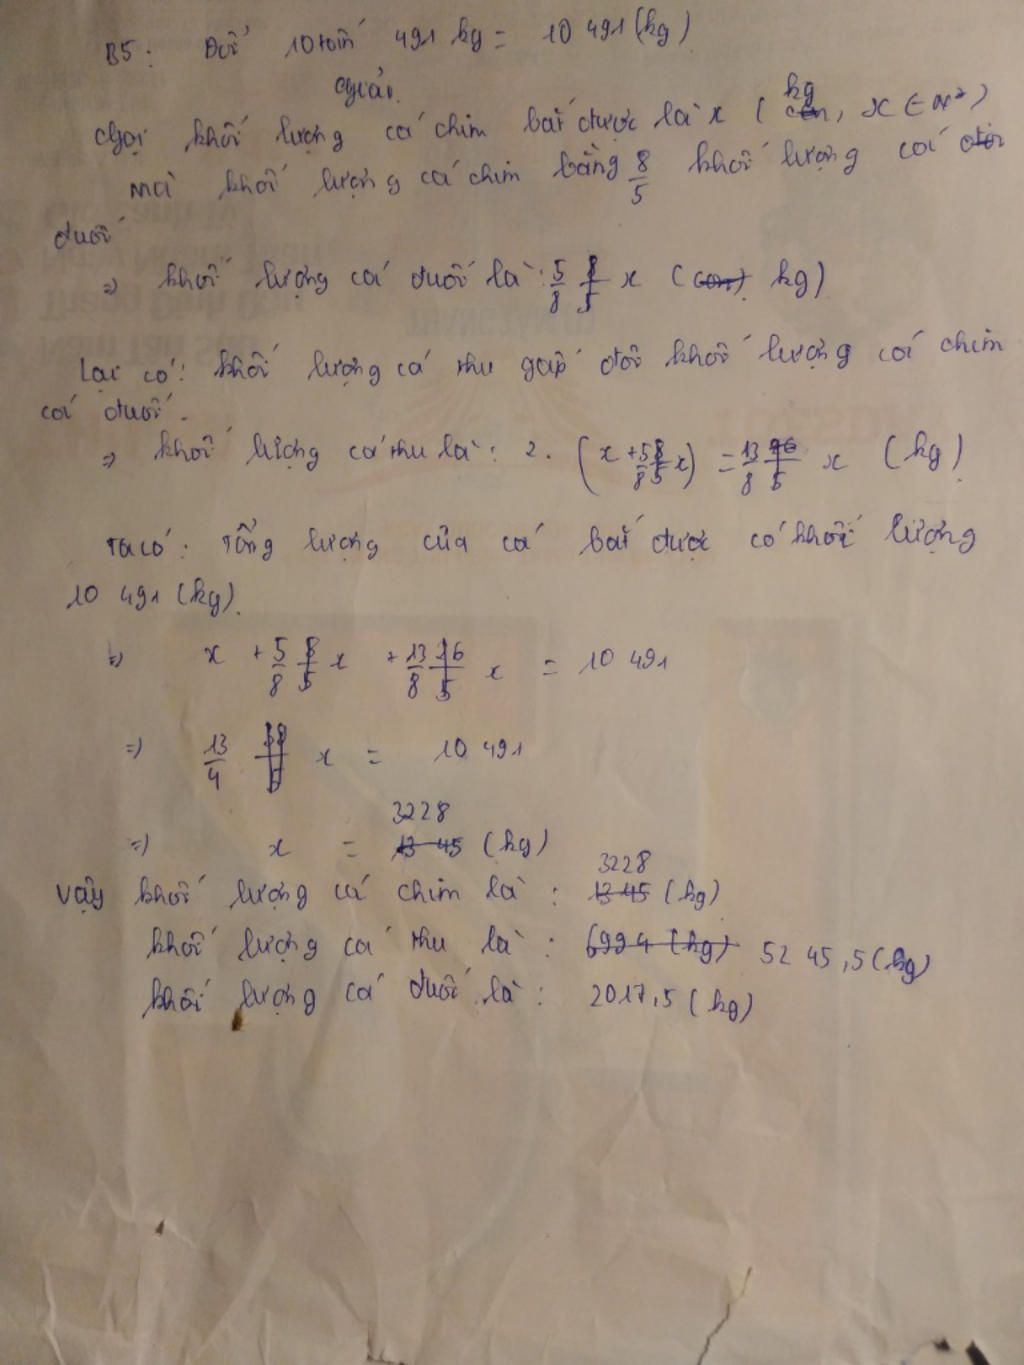 B5: Đổi 10 tấn 491 kg = 10 491 (kg)
Giải
Gọi khối lượng cá chim bắt được là x ( kg, x ∈ N*)
Mà khối lượng cá chim bằng 8/5 khối lượng cá
đuối
=> khối lượng cá đuối là: 5/8 x ( kg)
Lại có: khối lượng cá thu gấp đôi khối lượng cá chim
cá đuối.
=> khối lượng cá thu là: 2. (x + 5/8 x) = 13/8 x (kg)
Ta có: Tổng lượng của cá bắt được có khối lượng
10 491 (kg).
=> x + 5/8 x + 13/8 x = 10 491
=> 13/4 x = 10 491
=> x = 3228 (kg)
Vậy khối lượng cá chim là: 3228 (kg)
khối lượng cá thu là: 5245,5 (kg)
khối lượng cá đuối là: 2017,5 (kg)